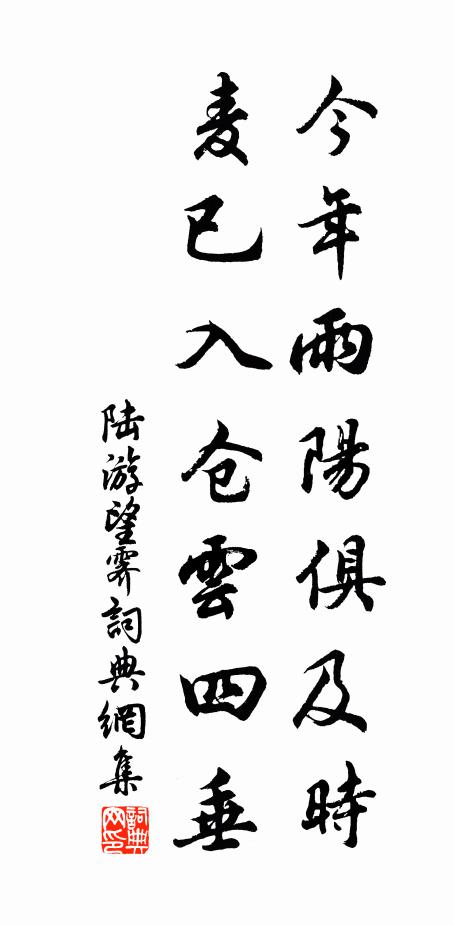 今年雨陽俱及時
麦已入仓雲四垂
陆游望霽詞典網集
詞典網印